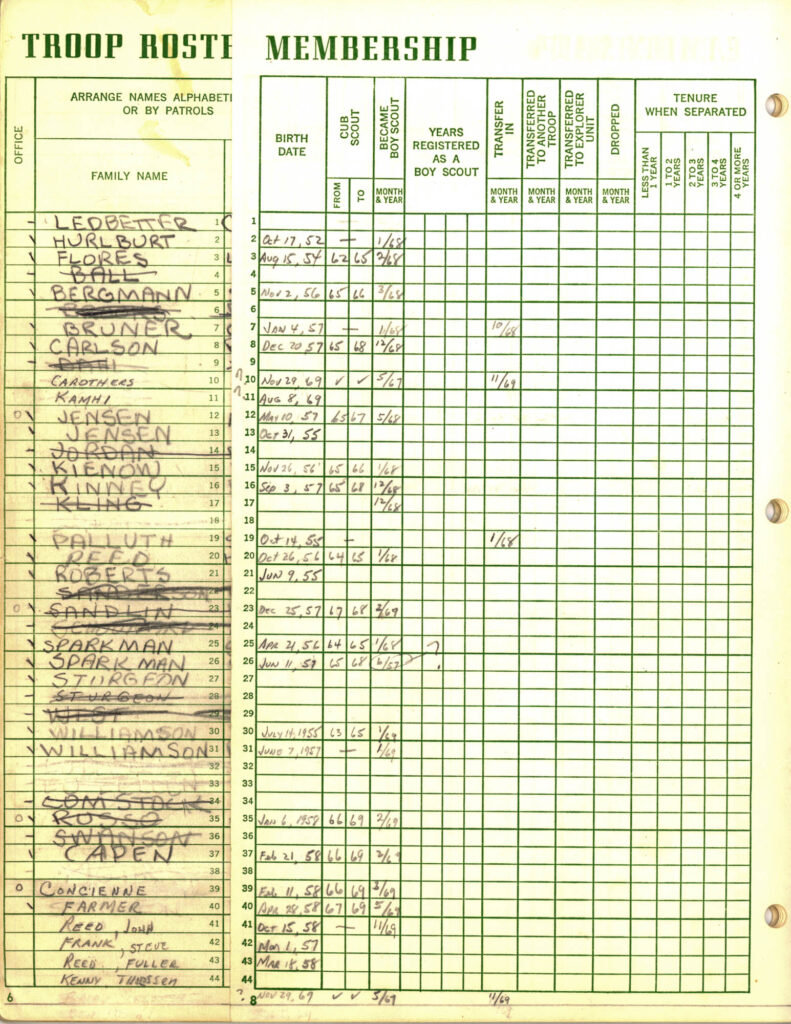 TROOP ROSTE MEMBERSHIP
OFFICE
ARRANGE NAMES ALPHABETI
OR BY PATROLS
FAMILY NAME
BIRTH DATE
CUB SCOUT
FROM
TO
BECAME BOY SCOUT
MONTH & YEAR
YEARS REGISTERED AS A BOY SCOUT
TRANSFER IN
MONTH & YEAR
TRANSFERRED TO ANOTHER TROOP
MONTH & YEAR
TRANSFERRED TO EXPLORER UNIT
MONTH & YEAR
DROPPED
MONTH & YEAR
TENURE WHEN SEPARATED
LESS THAN 1 YEAR
1 TO 2 YEARS
2 TO 3 YEARS
3 TO 4 YEARS
4 OR MORE YEARS
LEDBETTER 1 1
HURLBURT 2 2 Oct 17, 52 — 1/68
FLORES 3 3 Aug 15, 54 62 65 2/68
BALL 4 4
BERGMANN 5 5 Nov 2, 56 65 66 3/68
6 6
BRUNER 7 7 JAN 4, 57 — 1/68 10/68
CARLSON 8 8 DEC 20 57 65 68 12/68
9 9
CAROTHERS 10 ? 10 Nov 29, 69 ✓ ✓ 5/67 11/69
KAMHI 11 ? 11 Aug 8, 69
O JENSEN 12 12 MAY 10, 57 65 67 5/68
JENSEN 13 13 Oct 31, 55
JORDAN 14 14
KIENOW 15 15 Nov 26, 56 65 66 1/68
KINNEY 16 16 Sep 3, 57 65 68 12/68
KLING 17 17 12/68
18 18
PALLUTH 19 19 Oct 14, 55 — 1/68
REED 20 20 Oct 26, 56 64 65 1/68
ROBERTS 21 21 JUN 9, 55
22 22
O SANDLIN 23 23 Dec 25, 57 67 68 2/69
24 24
SPARKMAN 25 25 APR 21, 56 64 65 1/68 ?
SPARKMAN 26 26 JUN 11, 57 65 68 6/57
STURGEON 27 27
STURGEON 28 28
WEST 29 29
WILLIAMSON 30 30 July 14, 1955 63 65 1/69
WILLIAMSON 31 31 JUNE 7, 1957 — 1/69
32 32
33 33
COMSTOCK 34 34
O RUSSO 35 35 JAN 6, 1958 66 69 2/69
SWANSON 36 36
CAPEN 37 37 Feb 21, 58 66 69 2/69
38 38
O CONCIENNE 39 39 Feb 11, 58 66 69 3/69
FARMER 40 40 APR 28, 58 67 69 5/69
REED, JOHN 41 41 Oct 15, 58 — 11/69
FRANK, STEVE 42 42 57
REED, FULLER 43 43 MAR 18, 58
KENNY THIESSEN 44 44
6 ? 8 Nov 29, 69 ✓ ✓ 5/67 11/69